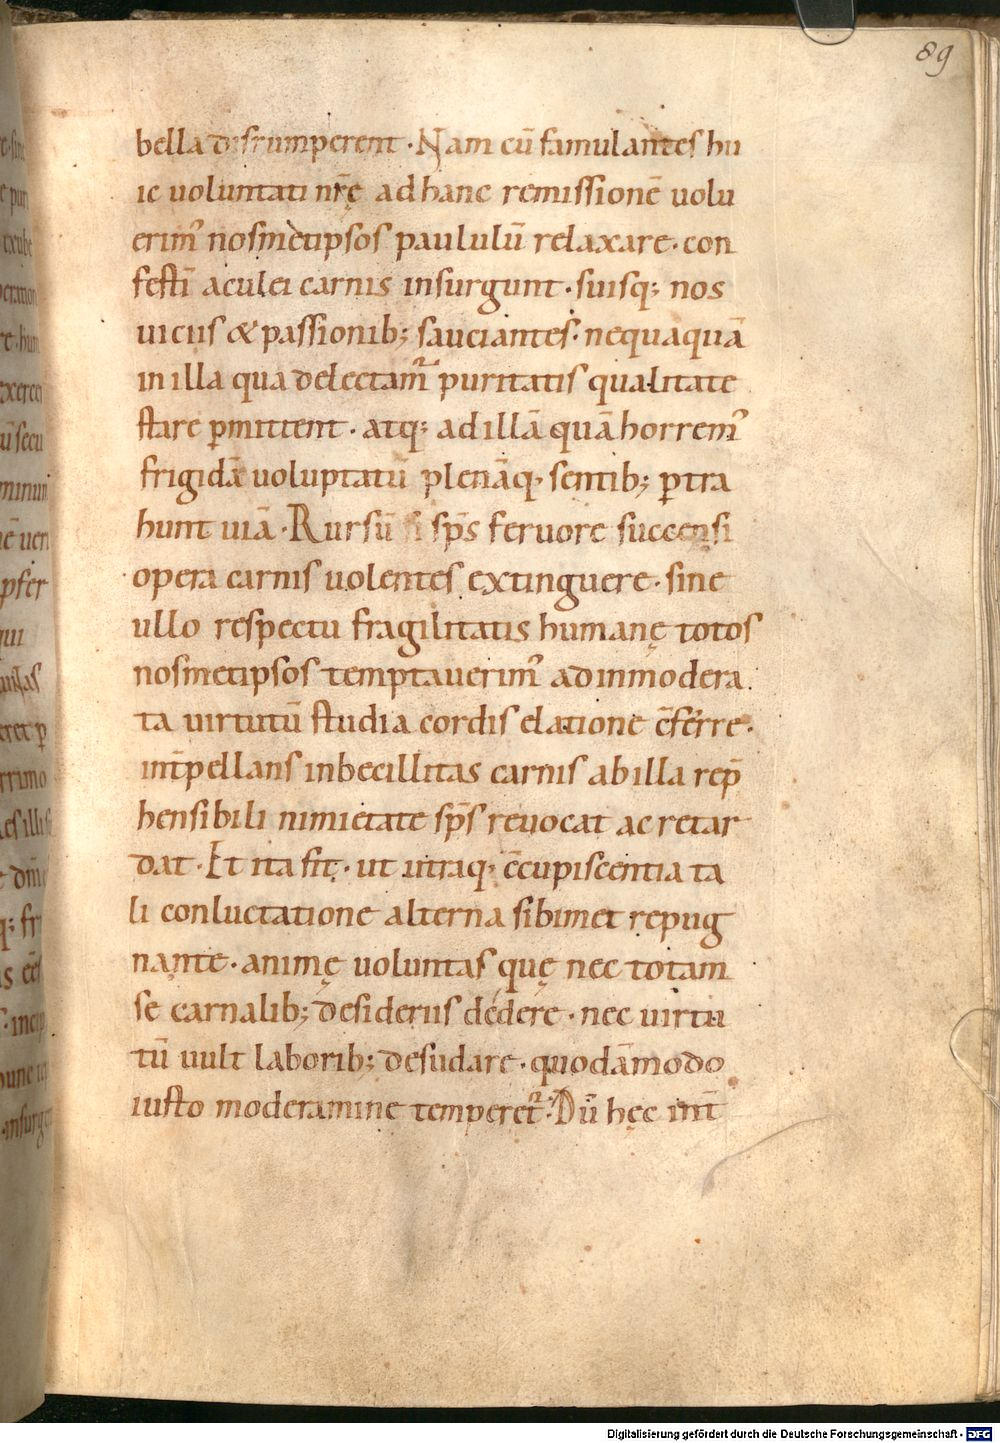 89
bella disrumperent · Nam cū famulantes hu
ic uoluntati nr̄ę ad hanc remissionē uolu
erim᾽ nosmetipsos paululū relaxare · con
festī aculei carnis insurgunt · suisq; nos
uiciis & passionib; sauciantes · nequaquā
in illa qua delectamᷣ puritatis qualitate
stare ꝑmittent · atq; ad illā quā horrem᾽
frigidā uoluptatū plenāq; sentib; ꝑtra
hunt uiā · Rursū si sp̄s feruore succensi
opera carnis uolentes extinguere · sine
ullo respectu fragilitatis humanę totos
nosmetipsos temptauerim᾽ ad inmodera
ta uirtutū studia cordis elatione c̄ferre ·
int̄pellans inbecillitas carnis ab illa rep̄
hensibili nimietate sp̄s reuocat ac retar
dat · Et ita fit · ut utraq; c̄cupiscentia ta
li conluctatione alterna sibimet repug
nante · animę uoluntas quę nec totam
se carnalib; desideriis dedere · nec uirtu
tū uult laborib; desudare · quodāmodo
iusto moderamine temperetᷣ · Dū hęc int̄
Digitalisierung gefördert durch die Deutsche Forschungsgemeinschaft - DFG